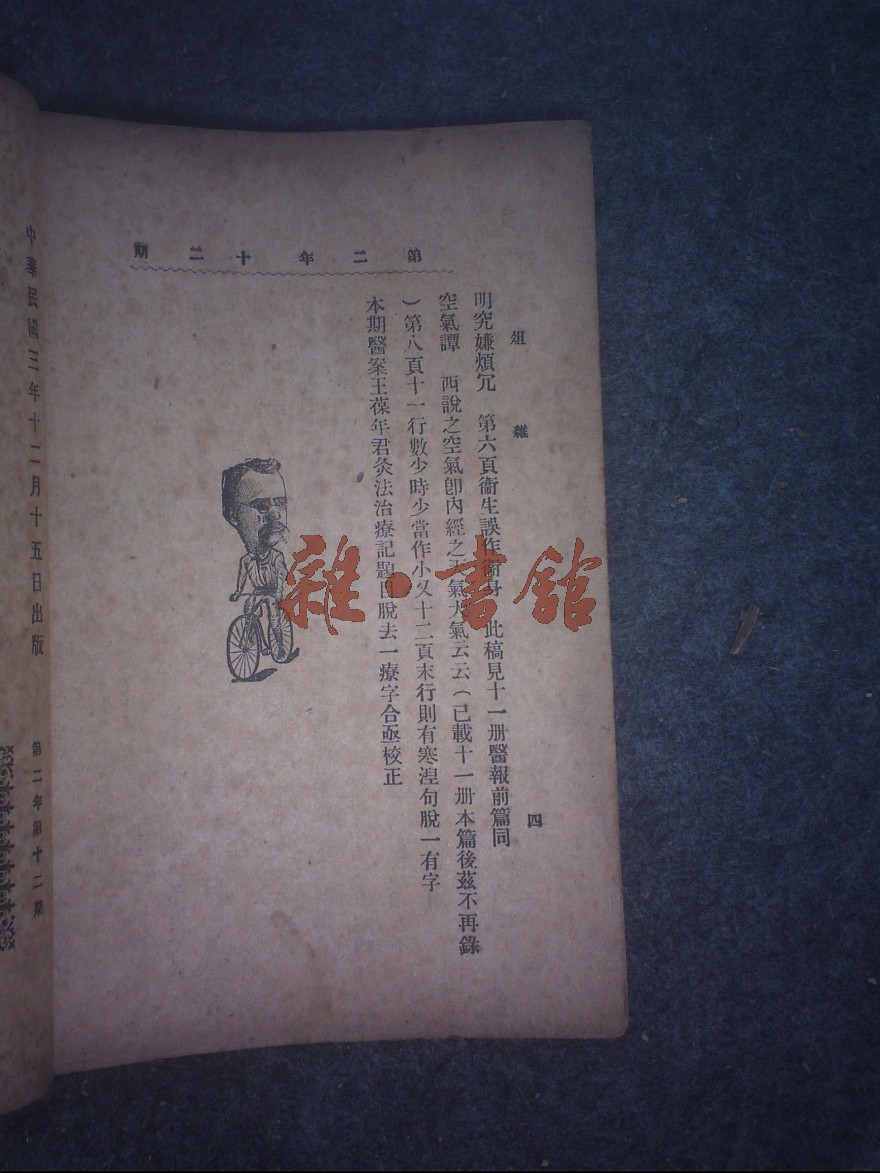 第二年十二期
雜俎
四
明究嫌煩冗　第六頁衞生誤作衞身　此稿見十一册醫報前篇同
空氣譚　西說之空氣卽內經之天氣大氣云云（已載十一册本篇後茲不再錄
）第八頁十一行數少時少當作小又十二頁末行則有寒湼句脫一有字
本期醫案王葆年君灸法治療記題目脫去一療字合亟校正
雜·書館
中華民國三年十二月十五日出版
第二年第十二期